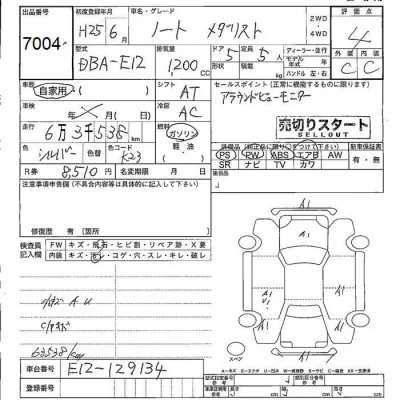 出品番号
7004
初度登録年月
H25年6月
車名・グレード
ノート メダリスト
2WD
4WD
評価点
4
型式
DBA-E12
排気量
1200cc
ドア
5
定員
5人
ディーラー・並行
ハンドル 左・右
外装
内装
C
C
車歴
自家用
シフト
AT
セールスポイント(正常に機能するものに限ります)
アラウンドビューモニター
車検
年 月
冷房
AC
走行
6万3千538km
燃料
ガソリン
軽油
売切りスタート
SELLOUT
色
シルバー
色替
色コード
K23
装備品(純正品に限り○をつけて下さい)
PS PW ABS エアB AW
SR ナビ TV カワ
新車保証書
有・無
R券
8510円
名変期限
月 日
注意事項申告欄(不具合内容等は具体的に記入して下さい)
修復歴 有(箇所)
検査員記入欄
FW キズ・飛石・ヒビ割・リペア跡・X要
内装 キズ・汚レ・コゲ・穴・スレ・キレ・破レ
A1
A1
A1
A1
A1
V1
A1
A1
スペア
63538km
車台番号
E12-129134
登録番号
A=キズ